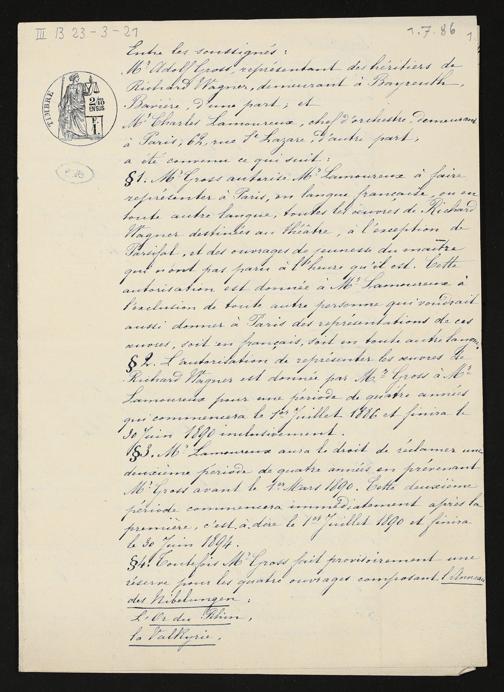 III B 23-3-21
1.7.86
1.
TIMBRE
Entre les soussignés :
Mr. Adolf Gross, représentant des héritiers de
Richard Wagner, demeurant à Bayreuth,
Bavière, d'une part, et
Mr. Charles Lamoureux, chef d'orchestre, demeurant
à Paris, 62, rue St. Lazare, d'autre part,
a été convenu ce qui suit :
§1. Mr. Gross autorise Mr. Lamoureux à faire
représenter à Paris, en langue française, ou en
toute autre langue, toutes les œuvres de Richard
Wagner destinées au théâtre, à l'exception de
Parsifal, et des ouvrages de jeunesse du maître
qui n'ont pas paru à l'heure qu'il est. Cette
autorisation est donnée à Mr. Lamoureux à
l'exclusion de toute autre personne qui voudrait
aussi donner à Paris des représentations de ces
œuvres, soit en français, soit en toute autre langue.
§2. L'autorisation de représenter les œuvres de
Richard Wagner est donnée par Mr. Gross à Mr.
Lamoureux pour une période de quatre années
qui commencera le 1er Juillet 1886 et finira le
30 Juin 1890 inclusivement.
§3. Mr. Lamoureux aura le droit de réclamer une
deuxième période de quatre années, en prévenant
Mr. Gross avant le 1er Mars 1890. Cette deuxième
période commencera immédiatement après la
première, c'est à dire le 1er Juillet 1890 et finira
le 30 Juin 1894.
§4. Toutefois Mr. Gross fait provisoirement une
réserve pour les quatre ouvrages composant l'Anneau
des Nibelungen :
L'Or du Rhin,
la Valkyrie,